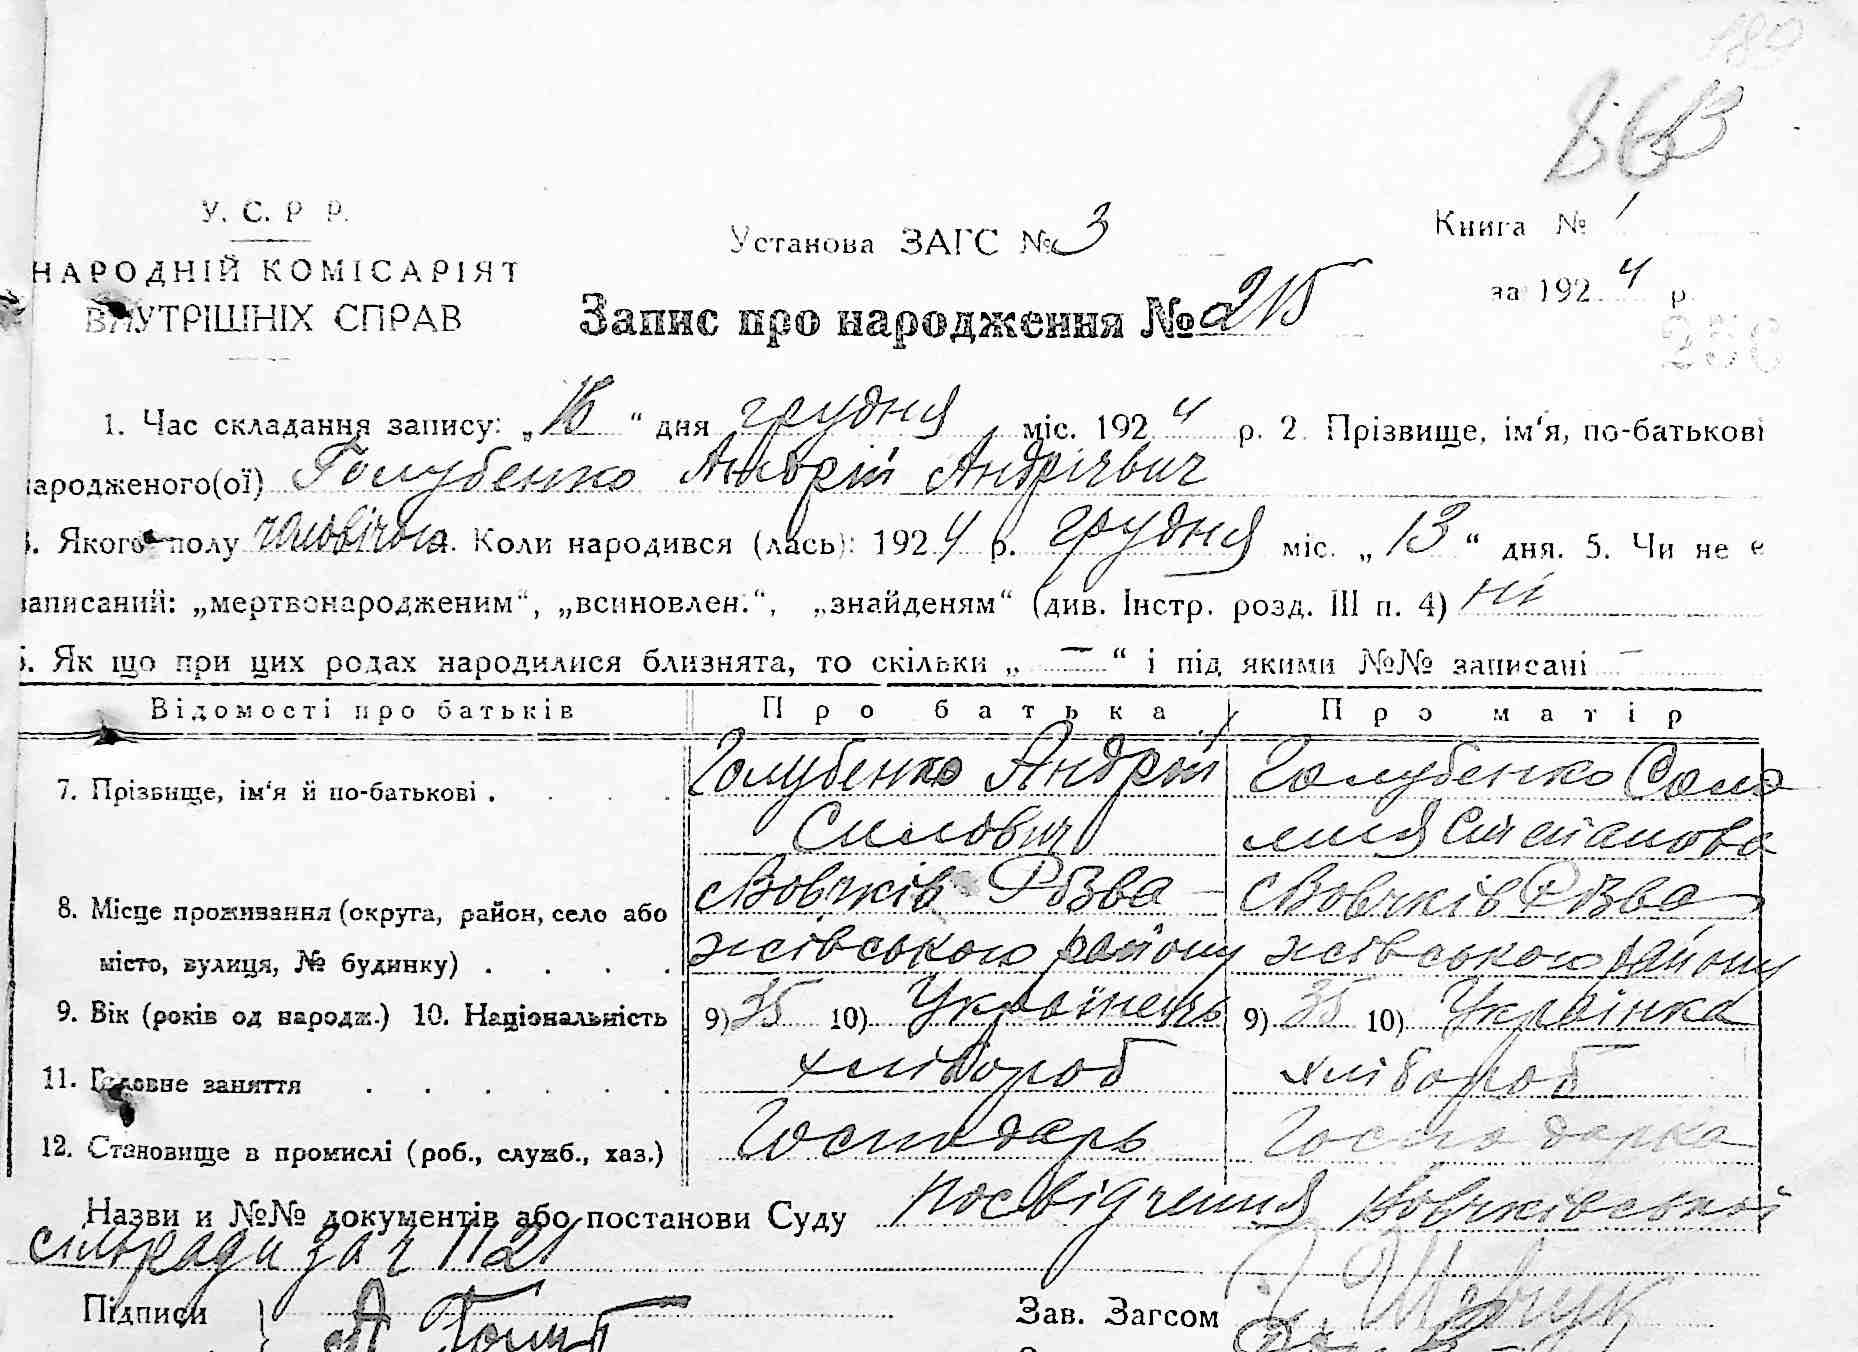 180
863
У. С. Р. Р.
НАРОДНІЙ КОМІСАРІЯТ
ВНУТРІШНІХ СПРАВ
Установа ЗАГС № 3
Книга № 1
за 1924 р.
Запис про народження № 215
1. Час складання запису: „16“ дня грудня міс. 1924 р. 2. Прізвище, ім‘я, по-батькові
народженого(ої) Голубенко Андрій Андрієвич
Якого полу чоловічого. Коли народився (лась): 1924 р. грудня міс. „13“ дня. 5. Чи не є
записаний: „мертвонародженим“, „всиновлен.“, „знайденям“ (див. Інстр. розд. III п. 4) ні
Як що при цих родах народилися близнята, то скільки „—“ і під якими №№ записані —
Відомості про батьків Про батька Про матір
7. Прізвище, ім‘я й по-батькові . . . . Голубенко Андрій Голубенко Соло
Силович мия Степанова
8. Місце проживання (округа, район, село або Вовчків Розва Вовчків Розва
місто, вулиця, № будинку) . . . . жівського району жівського району
9. Вік (років од народж.) 10. Національність 9) 35 10) Українець 9) 35 10) Українка
11. Головне заняття . . . . . . хлібороб хлібороб
12. Становище в промислі (роб., служб., хаз.) Господарь Господарка
Назви и №№ документів або постанови Суду посвідчення Вовчківської
сільради за ч 1121
Підписи А Голуб Зав. Загсом Шевчук